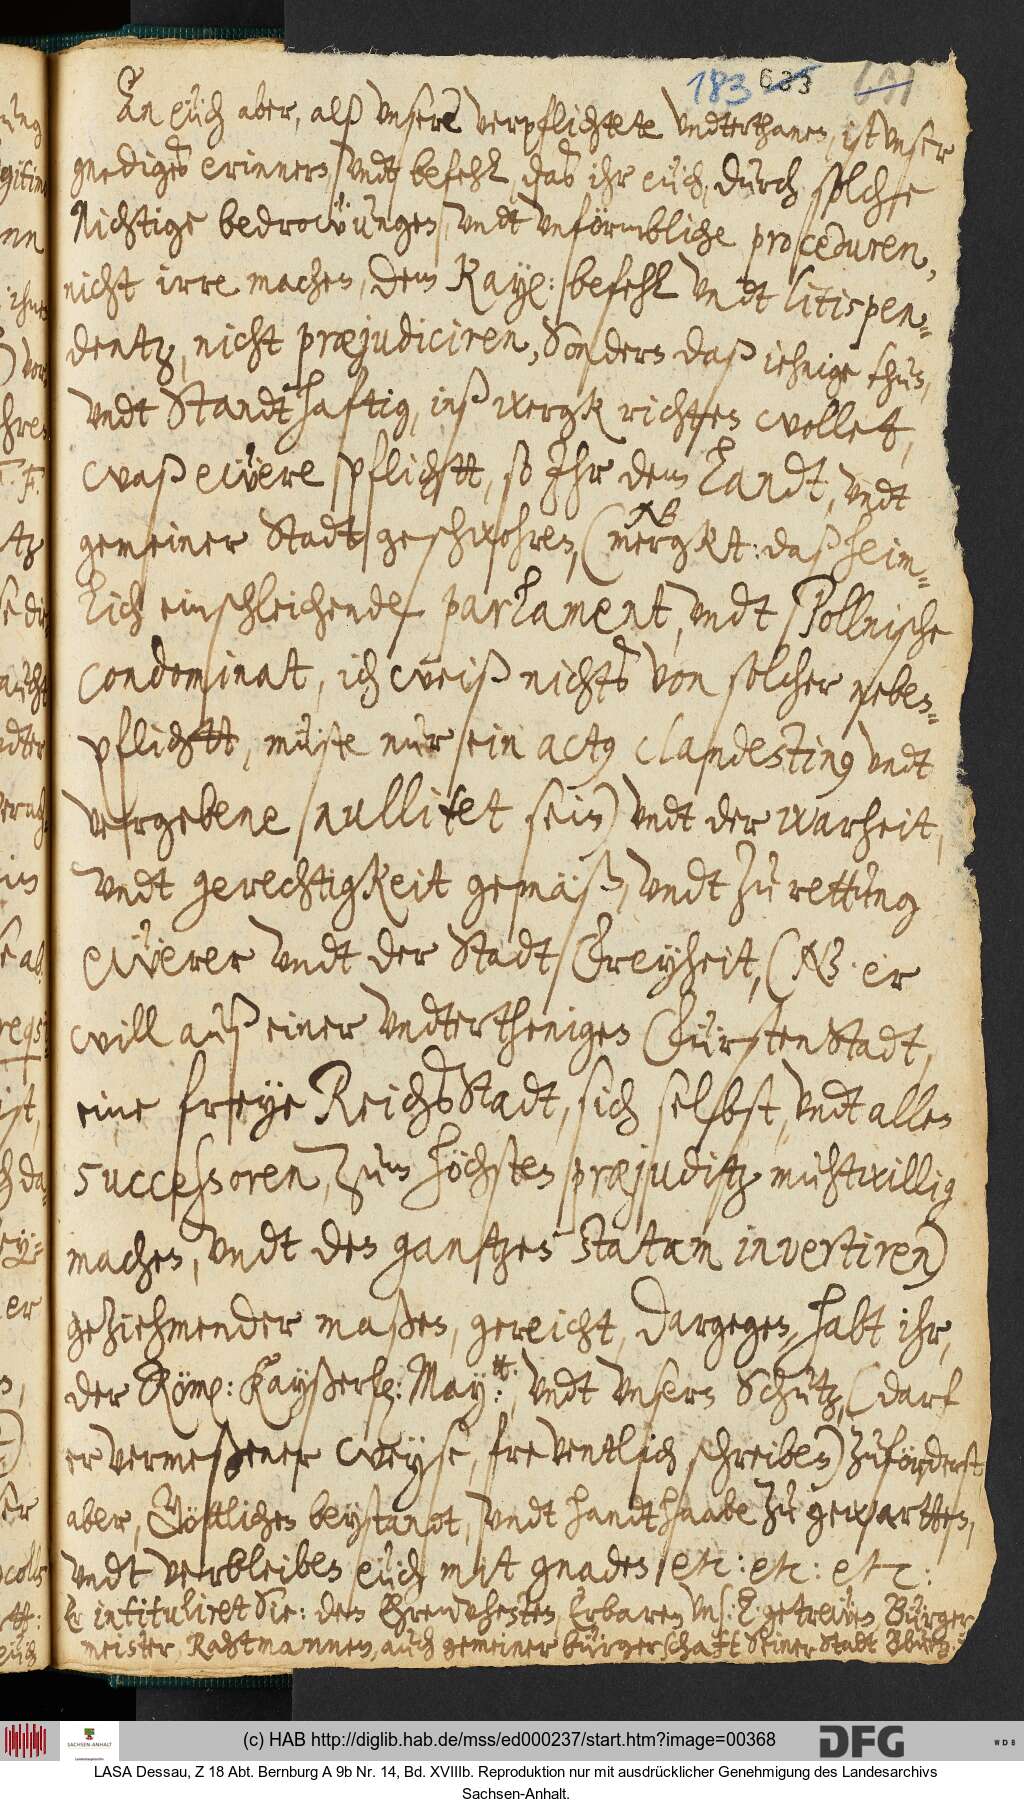 183 633 691
An euch aber, alß vnsere verpflichtete vndterthanen, ist vnser
gnediges erinnern, vndt befehl, das ihr euch, durch solche
Nichtige bedrowungen, vndt vnförmbliche proceduren,
nicht irre machen, dem Kayß: befehl vndt litispen-
dentz, nicht præjudiciren, Sondern daß iehnige thun,
vndt Standthaftig, inß werck richten wollet,
waß ewere pflichtt, so Ihr dem Landt, vndt
gemeiner Stadt geschwohren, (NB mergkt: daß heim-
lich einschleichende parlament, vndt Pollnische
condominat, ich weiß nichts von solcher neben-
pflichtt, müste nur ein actus clandestinus vndt
vergebene nullitet sein) vndt der warheit,
vndt gerechtigkeit gemäß, vndt zu rettung
ewerer vndt der Stadt Freyheit, (NB. er
will auß einer vndterthenigen FürstenStadt,
eine freye ReichsStadt, sich selbst, vndt allen
successoren, zum höchsten præjuditz muhtwillig
machen, vndt den gantzen statum invertiren)
geziehmender maßen, gereicht, dargegen, habt ihr,
der Röm: Kayßerl: May:tt: vndt vnsern Schutz, (darf
er vermeßener weyse, freventlich schreiben) zuförderst
aber, Göttlichen beystandt, vndt handthaabe zu gewartten,
vndt verbleiben euch mit gnaden etc: etc: etc:
Er intituliret Sie: den Ehrenvhesten, Erbaren, vns: L: getrewen, Bürger-
meister, Rahtmannen, auch gemeiner bürgerschaft Seiner Stadt
(c) HAB http://diglib.hab.de/mss/ed000237/start.htm?image=00368
SACHSEN-ANHALT
DFG
WDB
LASA Dessau, Z 18 Abt. Bernburg A 9b Nr. 14, Bd. XVIIIb. Reproduktion nur mit ausdrücklicher Genehmigung des Landesarchivs
Sachsen-Anhalt.